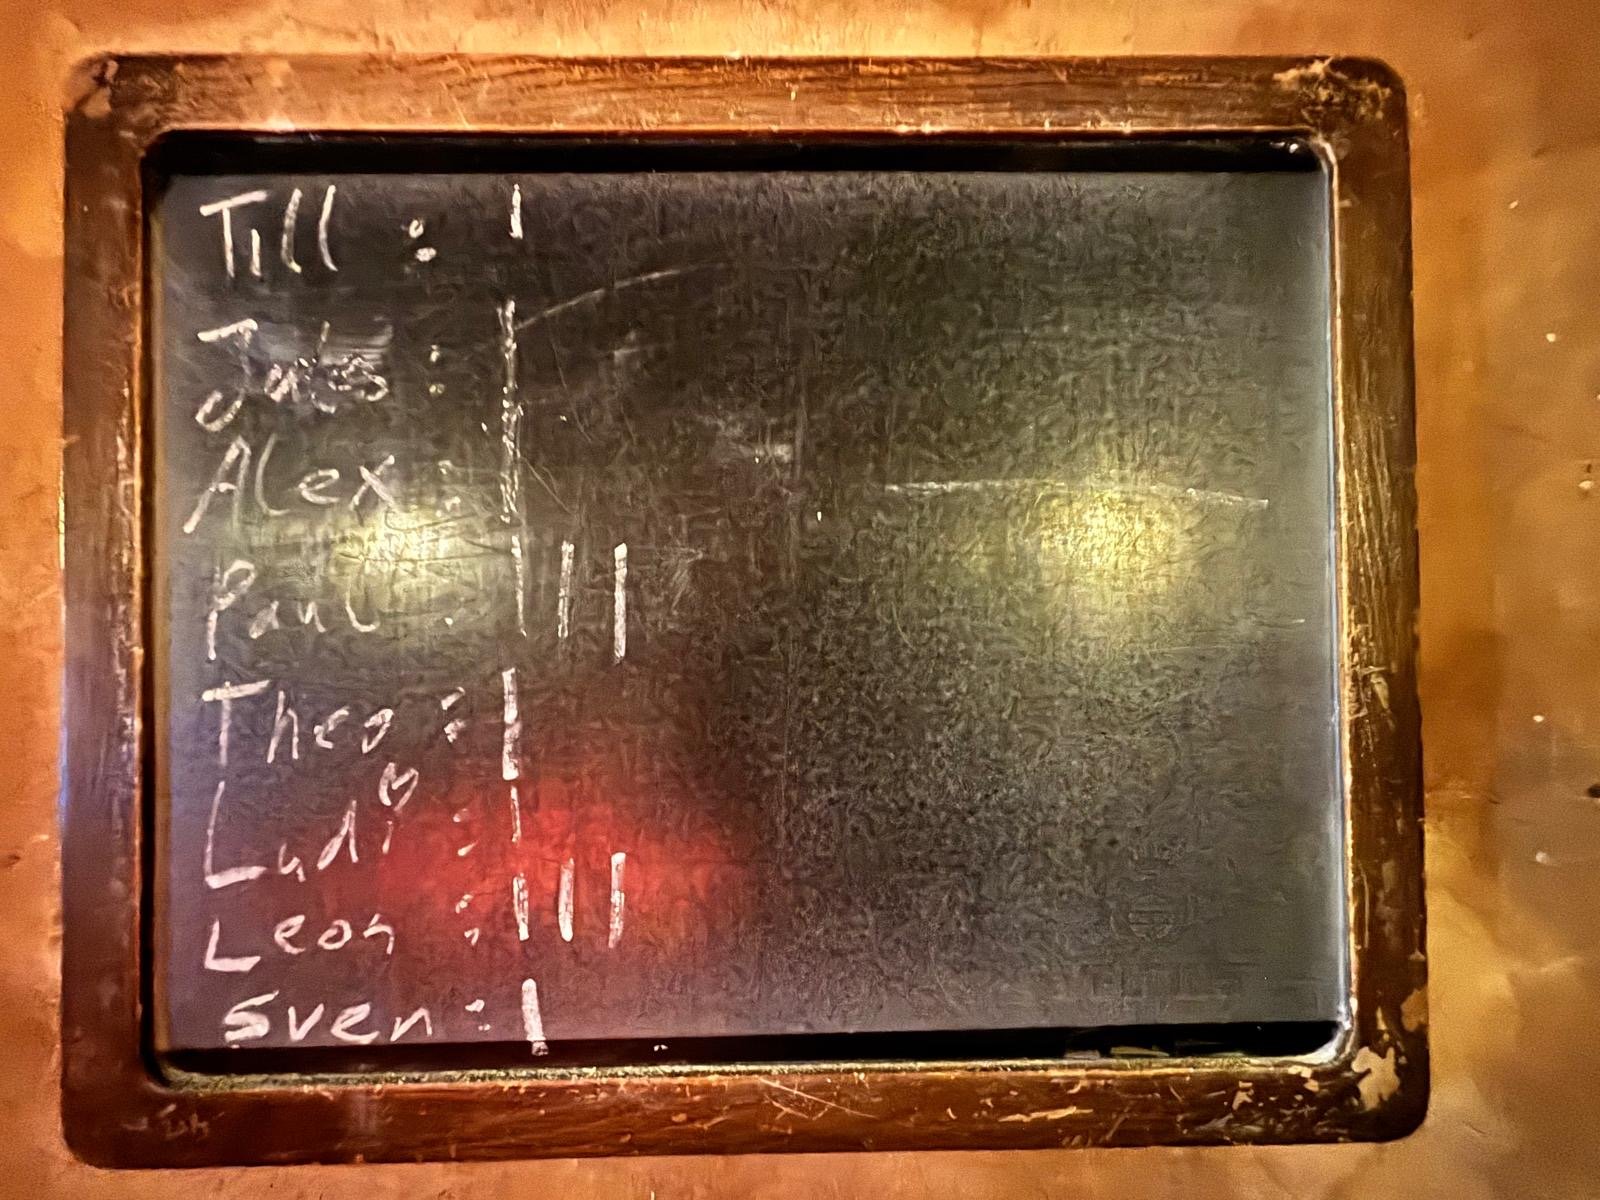 Till : |
Jaks : |
Alex : |
Paul : |||
Theo : |
Ludi : |
Leon : |||
Sven : |